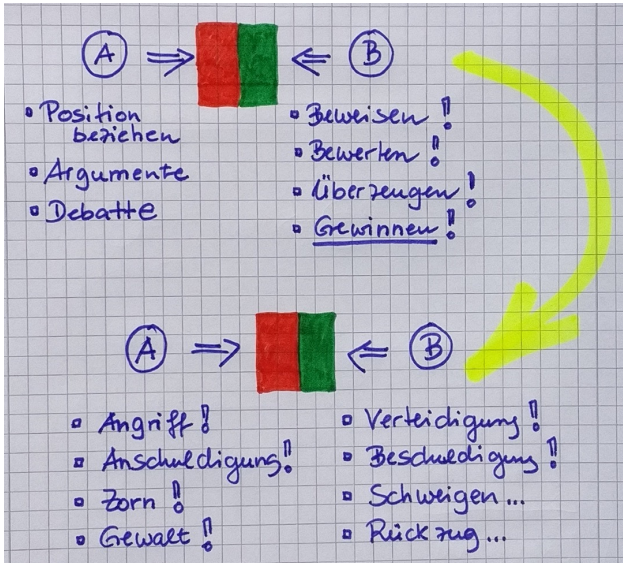 A ⇒ ⇐ B
▫ Position
beziehen
▫ Argumente
▫ Debatte
▫ Beweisen!
▫ Bewerten!
▫ Überzeugen!
▫ Gewinnen!
A ⇒ ⇐ B
▫ Angriff!
▫ Anschuldigung!
▫ Zorn!
▫ Gewalt!
▫ Verteidigung!
▫ Beschuldigung!
▫ Schweigen...
▫ Rückzug...